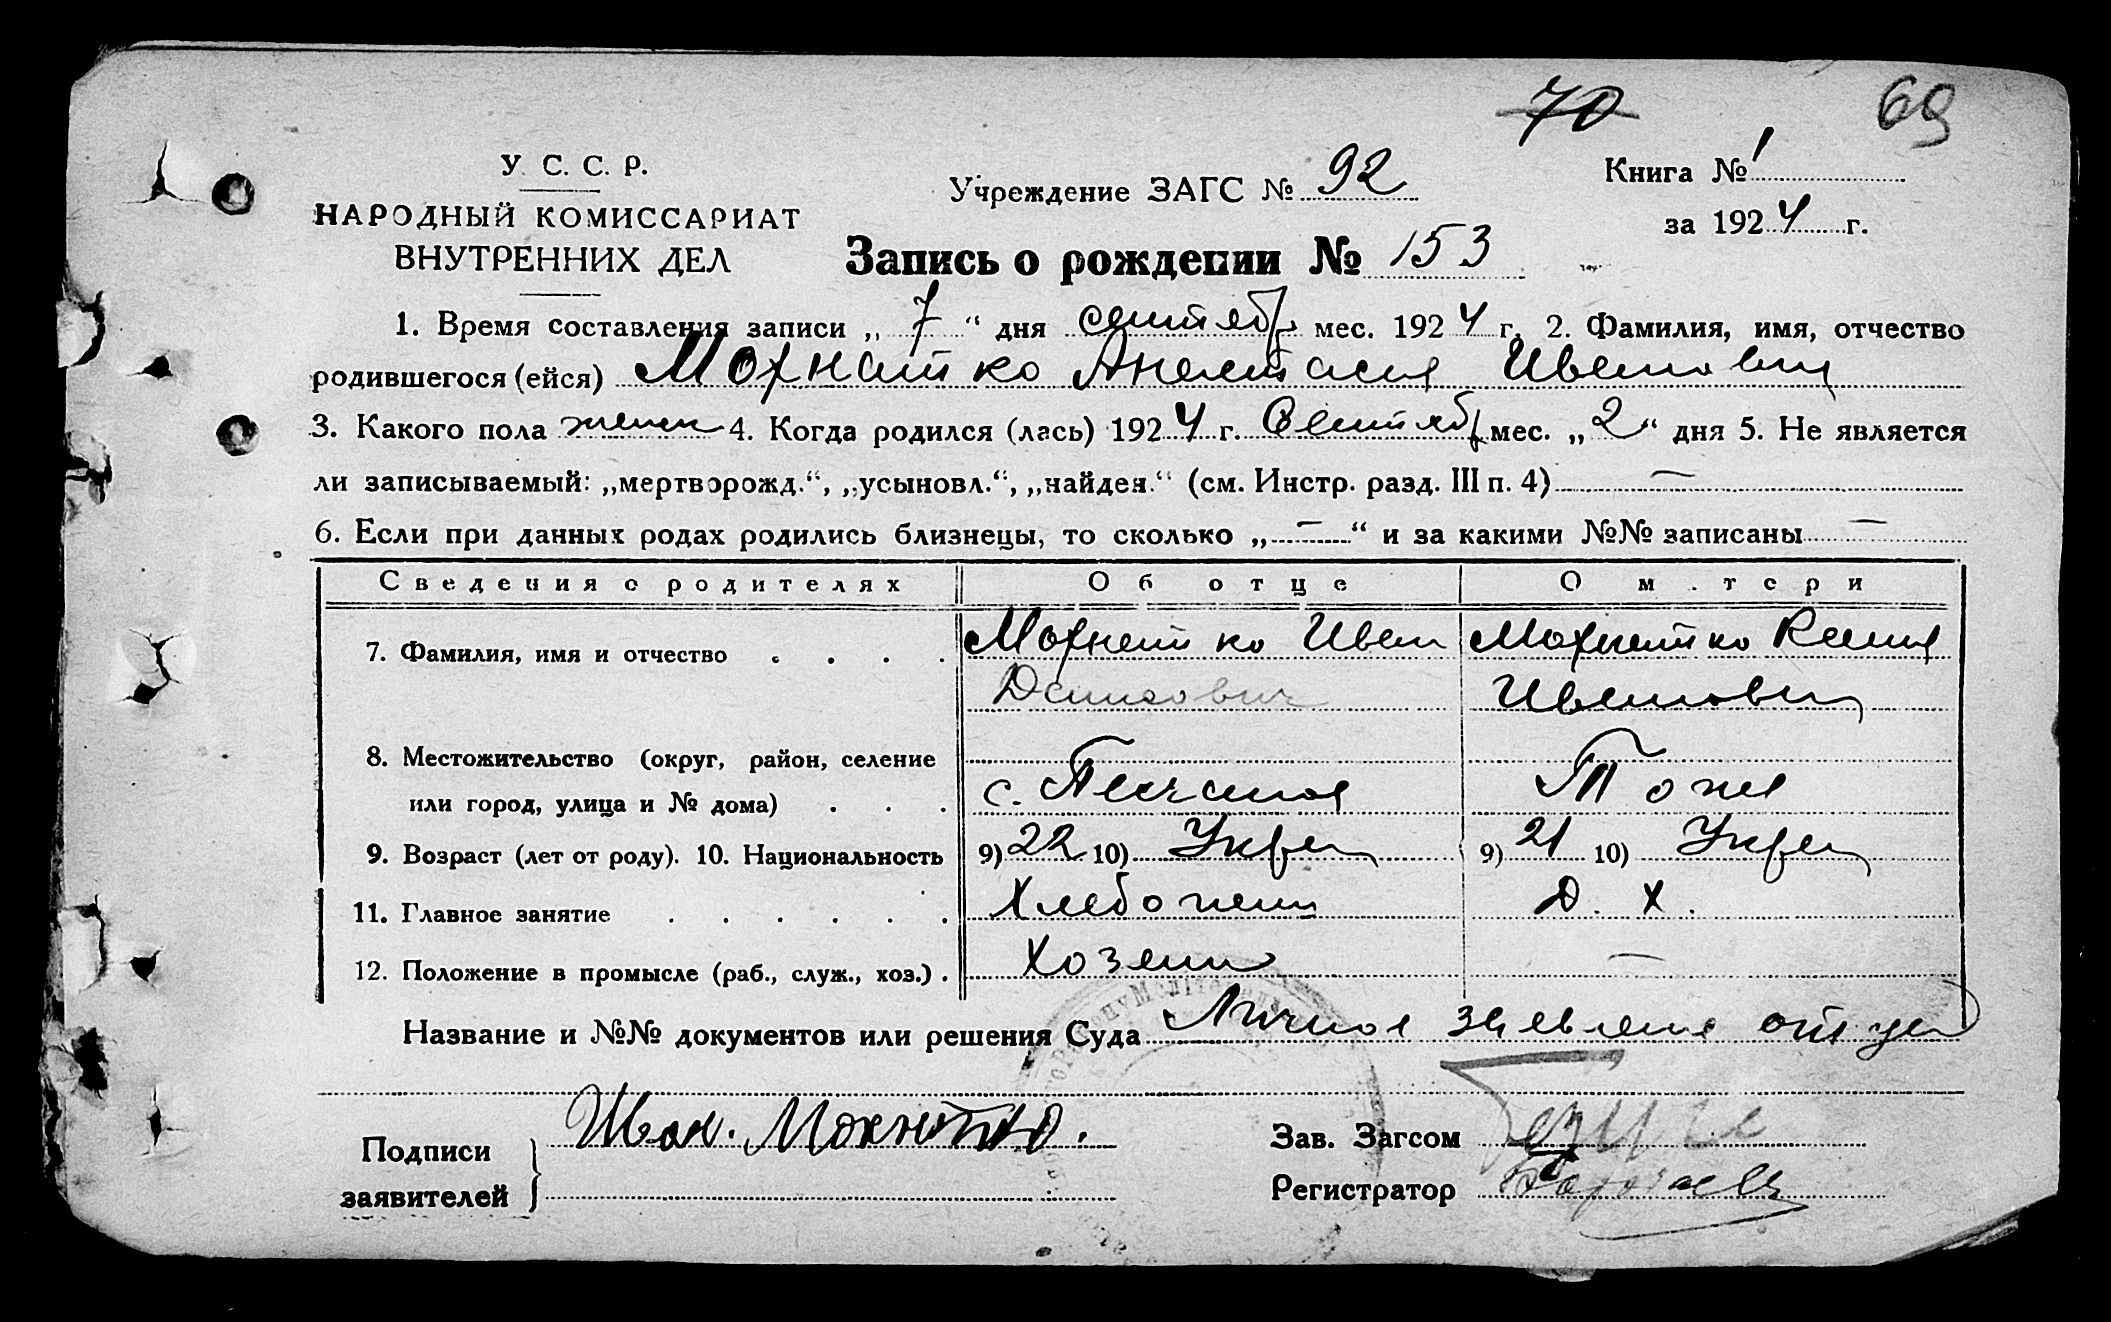 70 69
У. С. С. Р.
НАРОДНЫЙ КОМИССАРИАТ
ВНУТРЕННИХ ДЕЛ
Учреждение ЗАГС № 92
Книга № 1
за 1924 г.
Запись о рождении № 153
1. Время составления записи „ 7 “ дня сентябр мес. 1924 г. 2. Фамилия, имя, отчество
родившегося (ейся) Анастасия Ивановн
3. Какого пола женск 4. Когда родился (лась) 1924 г. Сентябр мес. „ 2 “ дня 5. Не является
ли записываемый: „мертворожд.“, „усыновл.“, „найден.“ (см. Инстр. разд. III п. 4) —
6. Если при данных родах родились близнецы, то сколько „ — “ и за какими №№ записаны —
Сведения о родителях Об отце О м.тери
7. Фамилия, имя и отчество . . . . Иван
Ивановн
8. Местожительство (округ, район, селение
или город, улица и № дома) . . . с. Песчаное Тоже
9. Возраст (лет от роду). 10. Национальность 9) 22 10) Украин 9) 21 10) Украин
11. Главное занятие . . . . . . Хлебопаш Д. Х.
12. Положение в промысле (раб., служ., хоз.) . Хозяин —
Название и №№ документов или решения Суда Личное заявление отца
Подписи
заявителей
Зав. Загсом
Регистратор